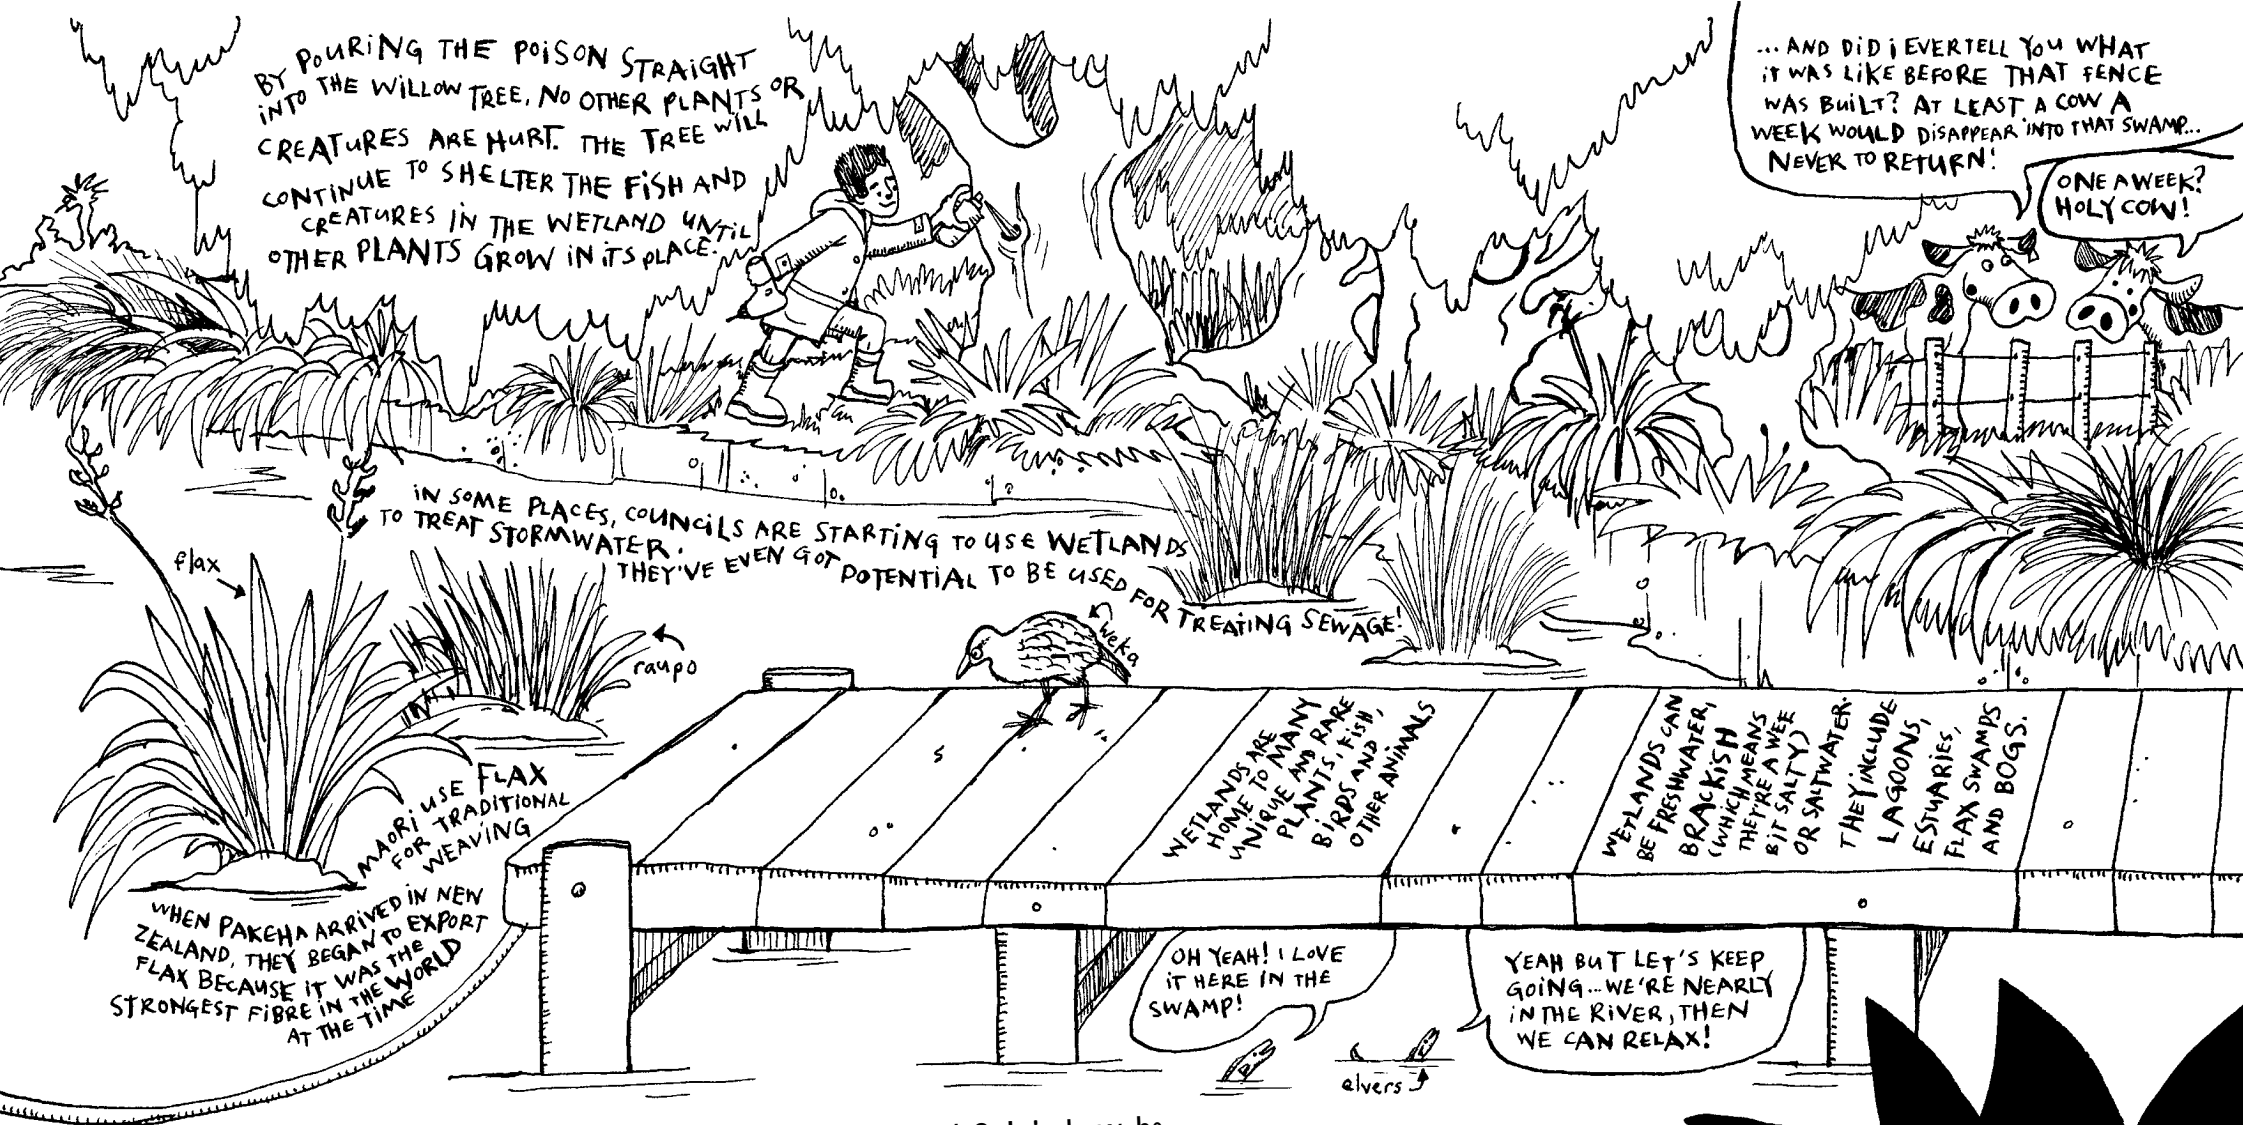 BY POURING THE POISON STRAIGHT
INTO THE WILLOW TREE, NO OTHER PLANTS OR
CREATURES ARE HURT. THE TREE WILL
CONTINUE TO SHELTER THE FISH AND
CREATURES IN THE WETLAND UNTIL
OTHER PLANTS GROW IN ITS PLACE.
... AND DID I EVER TELL YOU WHAT
IT WAS LIKE BEFORE THAT FENCE
WAS BUILT? AT LEAST A COW A
WEEK WOULD DISAPPEAR INTO THAT SWAMP...
NEVER TO RETURN!
ONE A WEEK?
HOLY COW!
IN SOME PLACES, COUNCILS ARE STARTING TO USE WETLANDS
TO TREAT STORMWATER.
THEY'VE EVEN GOT POTENTIAL TO BE USED FOR TREATING SEWAGE!
flax
raupo
weka
MAORI USE FLAX
FOR TRADITIONAL
WEAVING
WHEN PAKEHA ARRIVED IN NEW
ZEALAND, THEY BEGAN TO EXPORT
FLAX BECAUSE IT WAS THE
STRONGEST FIBRE IN THE WORLD
AT THE TIME
WETLANDS ARE
HOME TO MANY
UNIQUE AND RARE
PLANTS, FISH,
BIRDS AND
OTHER ANIMALS
WETLANDS CAN
BE FRESHWATER,
BRACKISH
(WHICH MEANS
THEY'RE A WEE
BIT SALTY)
OR SALTWATER.
THEY INCLUDE
LAGOONS,
ESTUARIES,
FLAX SWAMPS
AND BOGS.
OH YEAH! I LOVE
IT HERE IN THE
SWAMP!
YEAH BUT LET'S KEEP
GOING...WE'RE NEARLY
IN THE RIVER, THEN
WE CAN RELAX!
elvers